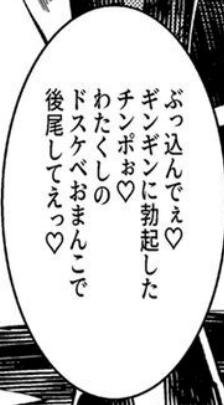 ぶっ込んでぇ♡
ギンギンに勃起した
チンポぉ♡
わたくしの
ドスケベおまんこで
後尾してえっ♡